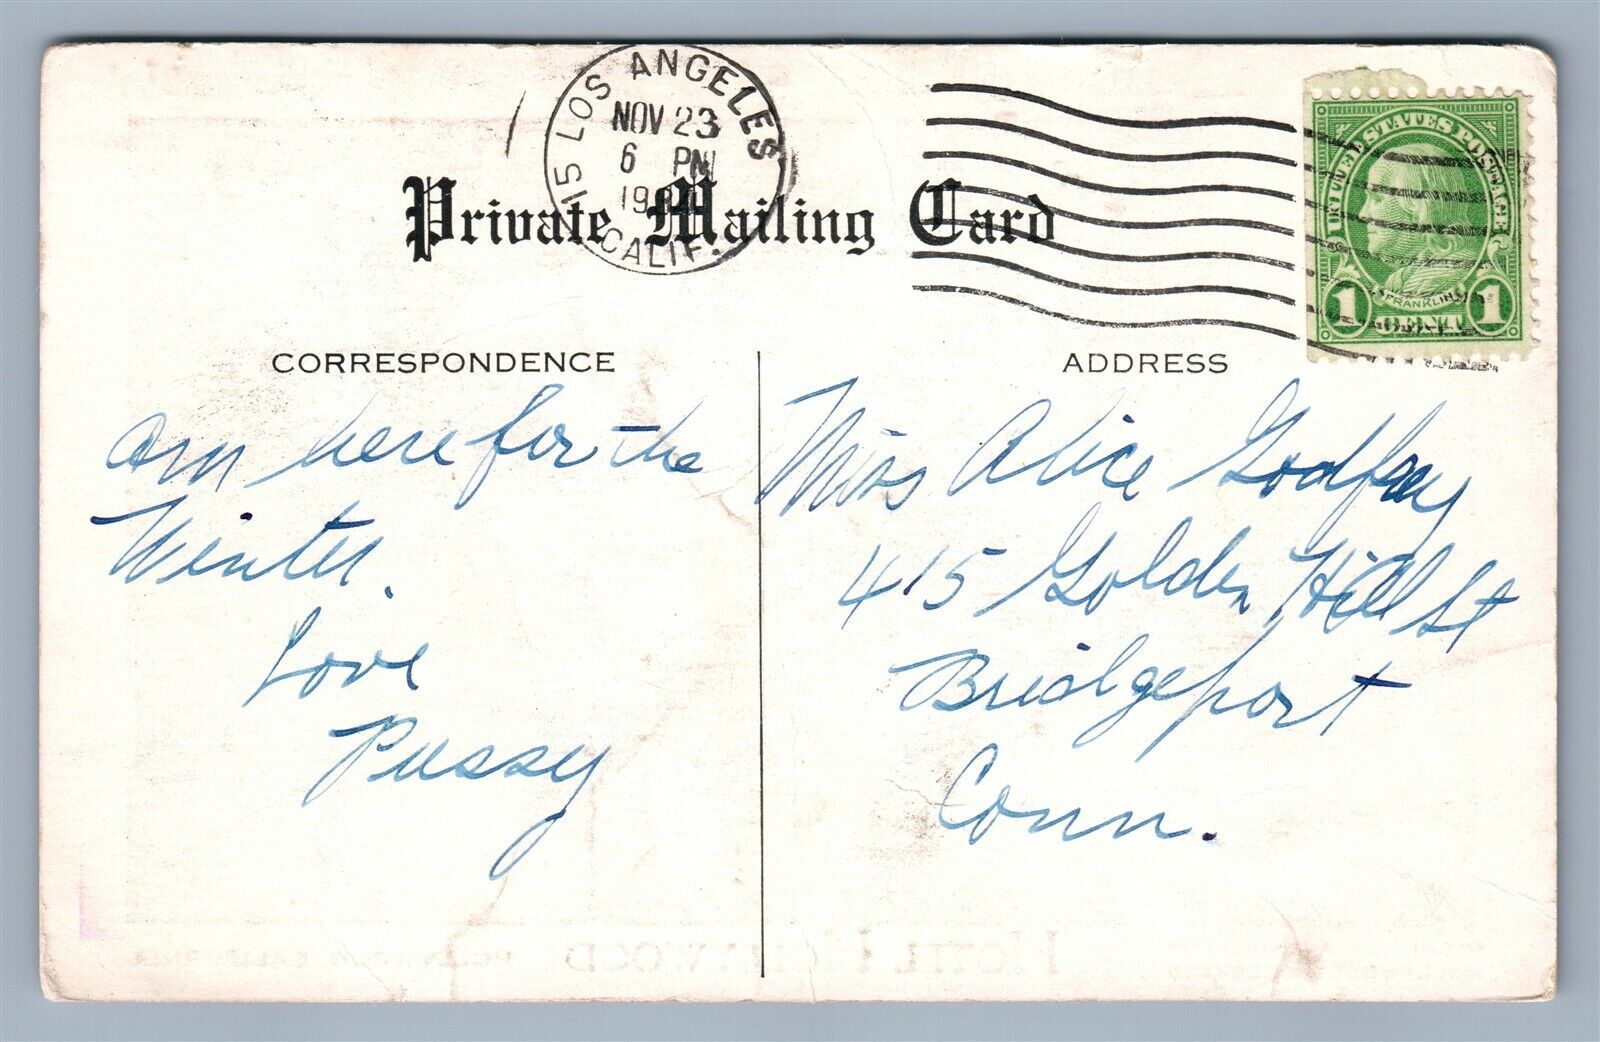 15 LOS ANGELES CALIF.
NOV 23
6 PM
Private Mailing Card
UNITED STATES POSTAGE
FRANKLIN
1 CENT 1
CORRESPONDENCE
Am here for the
Winter.
Love
Pussy
ADDRESS
Miss Alice Godfrey
415 Golden Hill St
Bridgeport
Conn.
HOTEL HOLLYWOOD